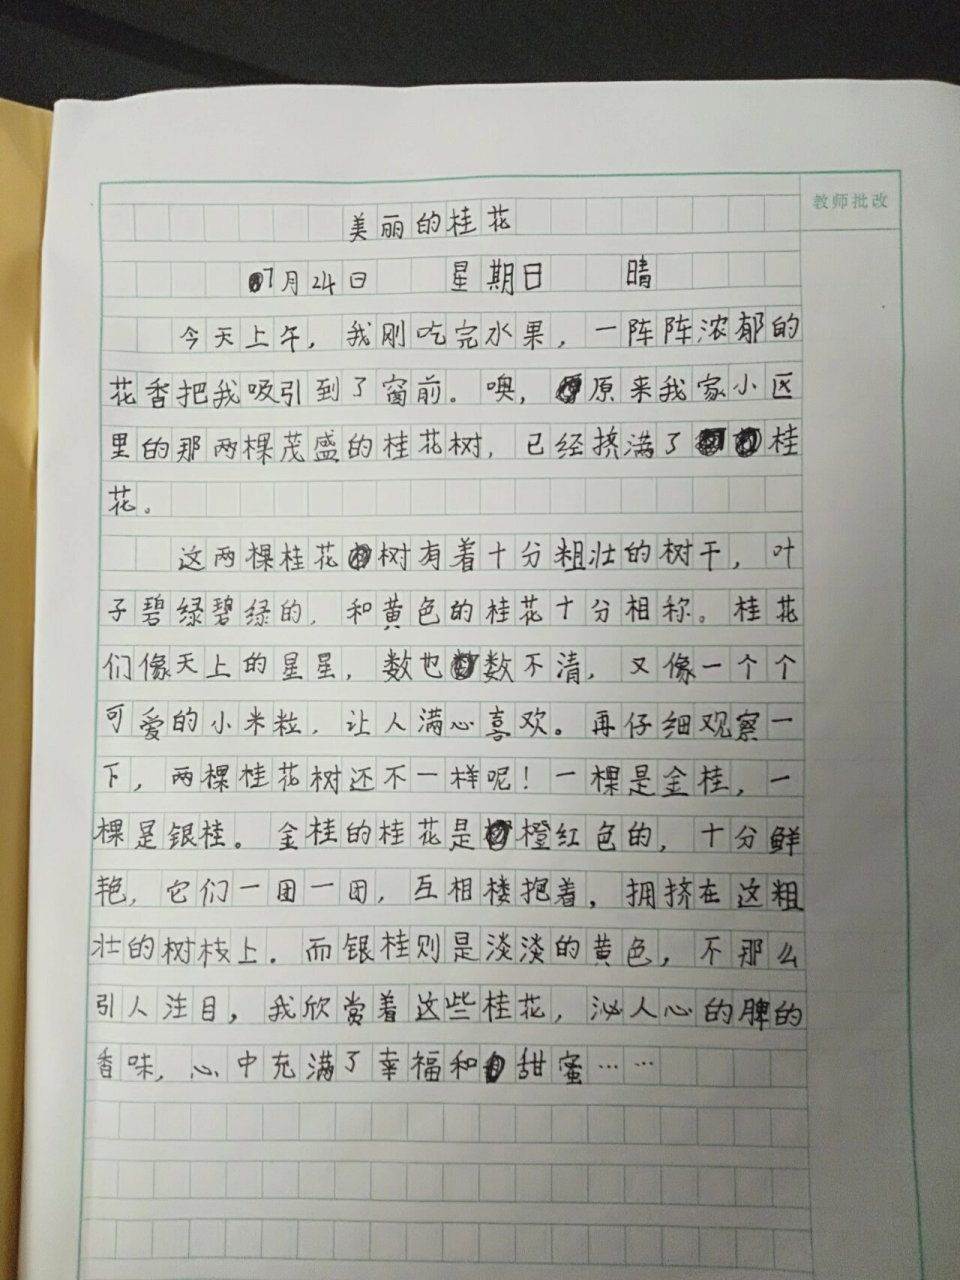 教师批改
美丽的桂花
7月24日 星期日 晴
今天上午，我刚吃完水果，一阵阵浓郁的
花香把我吸引到了窗前。噢，原来我家小区
里的那两棵茂盛的桂花树，已经挤满了桂
花。
这两棵桂花树有着十分粗壮的树干，叶
子碧绿碧绿的，和黄色的桂花十分相称。桂花
们像天上的星星，数也数不清，又像一个个
可爱的小米粒，让人满心喜欢。再仔细观察一
下，两棵桂花树还不一样呢！一棵是金桂，一
棵是银桂。金桂的桂花是橙红色的，十分鲜
艳，它们一团一团，互相楼抱着，拥挤在这粗
壮的树枝上。而银桂则是淡淡的黄色，不那么
引人注目，我欣赏着这些桂花，泌人心的脾的
香味，心中充满了幸福和甜蜜……